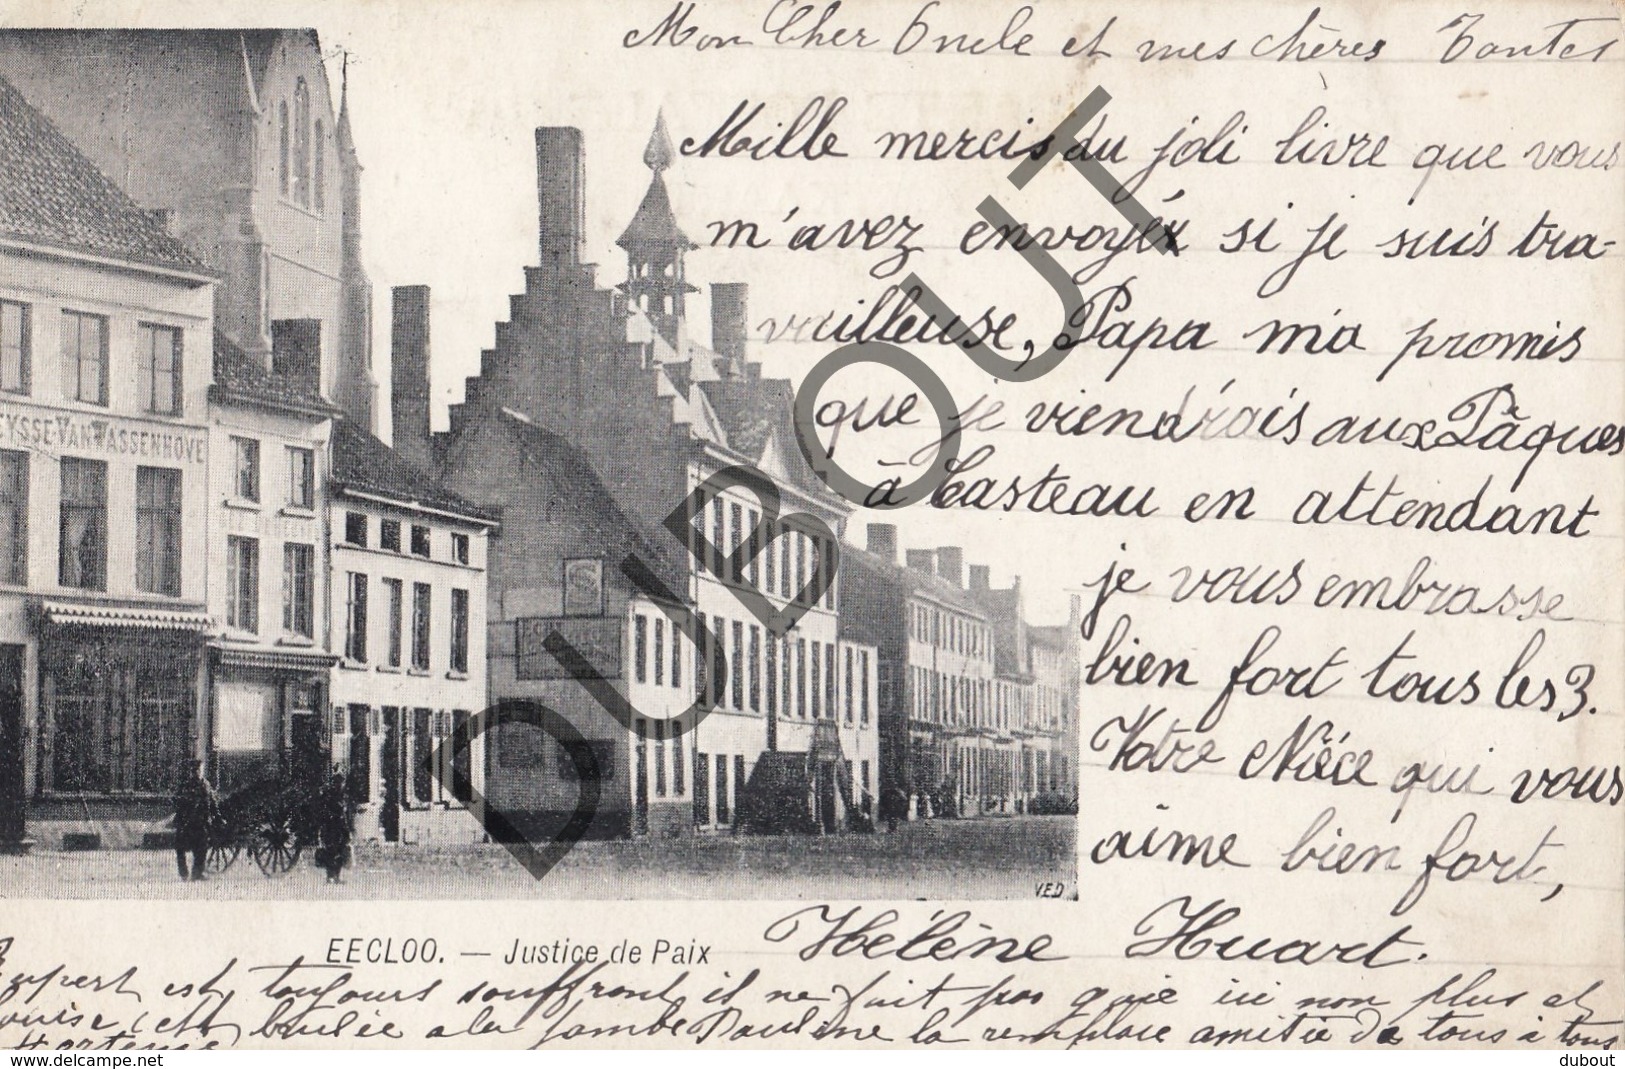 Mon Cher Oncle et mes chères Tantes
Mille mercis du joli livre que vous
m'avez envoyéx si je suis tra-
vailleuse, Papa m'a promis
que je viendrais aux Pâques
à Casteau en attendant
je vous embrasse
bien fort tous les 3.
Votre Nièce qui vous
aime bien fort,
Hélène Huart.
EYSSE-VAN WASSENHOVE
V.E.D
EECLOO. — Justice de Paix
est toujours souffrant il ne fait pas gaie ici non plus et
est brulée a la jambe Pauline la remplace amitié de tous à tous
Hortense
DUBOUT
www.delcampe.net
dubout